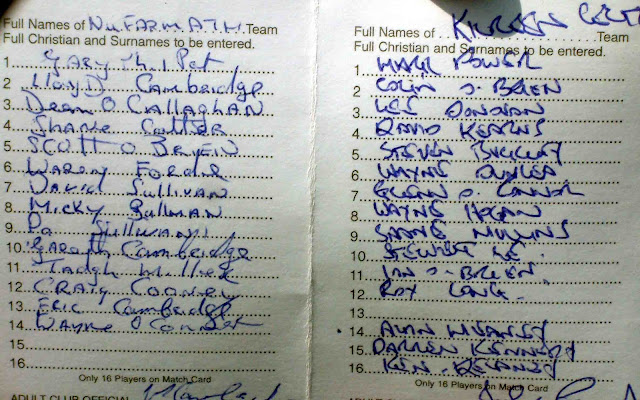 Full Names of Nu FARM A.T.H. Team
Full Christian and Surnames to be entered.
1 GARY
2 LLOYD Cambridge
3 Dean O CALLAGHAN
4 Shane Coulter
5 SCOTT O BRIEN
6 WARREN FORDE
7 DAVID Sullivan
8 MICKY
9 Pa Sullivan
10 Gareth Cambridge
11 Tadgh
12 CRAIG COONEY
13 ERIC Cambridge
14 WAYNE O Connor
15
16
Only 16 Players on Match Card
ADULT CLUB OFFICIAL
Full Names of Team
Full Christian and Surnames to be entered.
1 MARK POWER
2 COLIN O BRIEN
3 LEE DONOVAN
4 DAVID KEARNS
5 STEVEN BUCKLEY
6 WAYNE DUNLEA
7 GLENN O CONNOR
8 WAYNE HOGAN
9 SHANE MULLINS
10
11 IAN O BRIEN
12 ROY LONG
14 ALAN
15 DARREN KENNEDY
16 KEN
Only 16 Players on Match Card